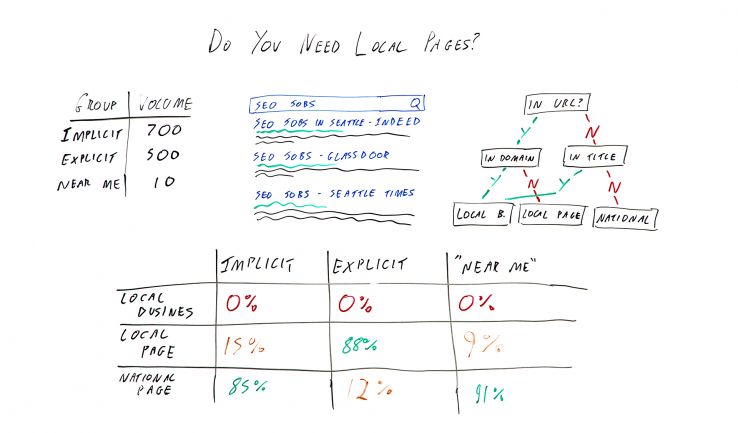 DO YOU NEED LOCAL PAGES?
GROUP VOLUME
IMPLICIT 700
EXPLICIT 500
NEAR ME 10
SEO JOBS Q
SEO JOBS IN SEATTLE - INDEED
SEO JOBS - GLASSDOOR
SEO JOBS - SEATTLE TIMES
IN URL?
Y N
IN DOMAIN IN TITLE
Y N Y N
LOCAL B. LOCAL PAGE NATIONAL
IMPLICIT EXPLICIT "NEAR ME"
LOCAL
BUSINES
0% 0% 0%
LOCAL
PAGE
15% 88% 9%
NATIONAL
PAGE
85% 12% 91%